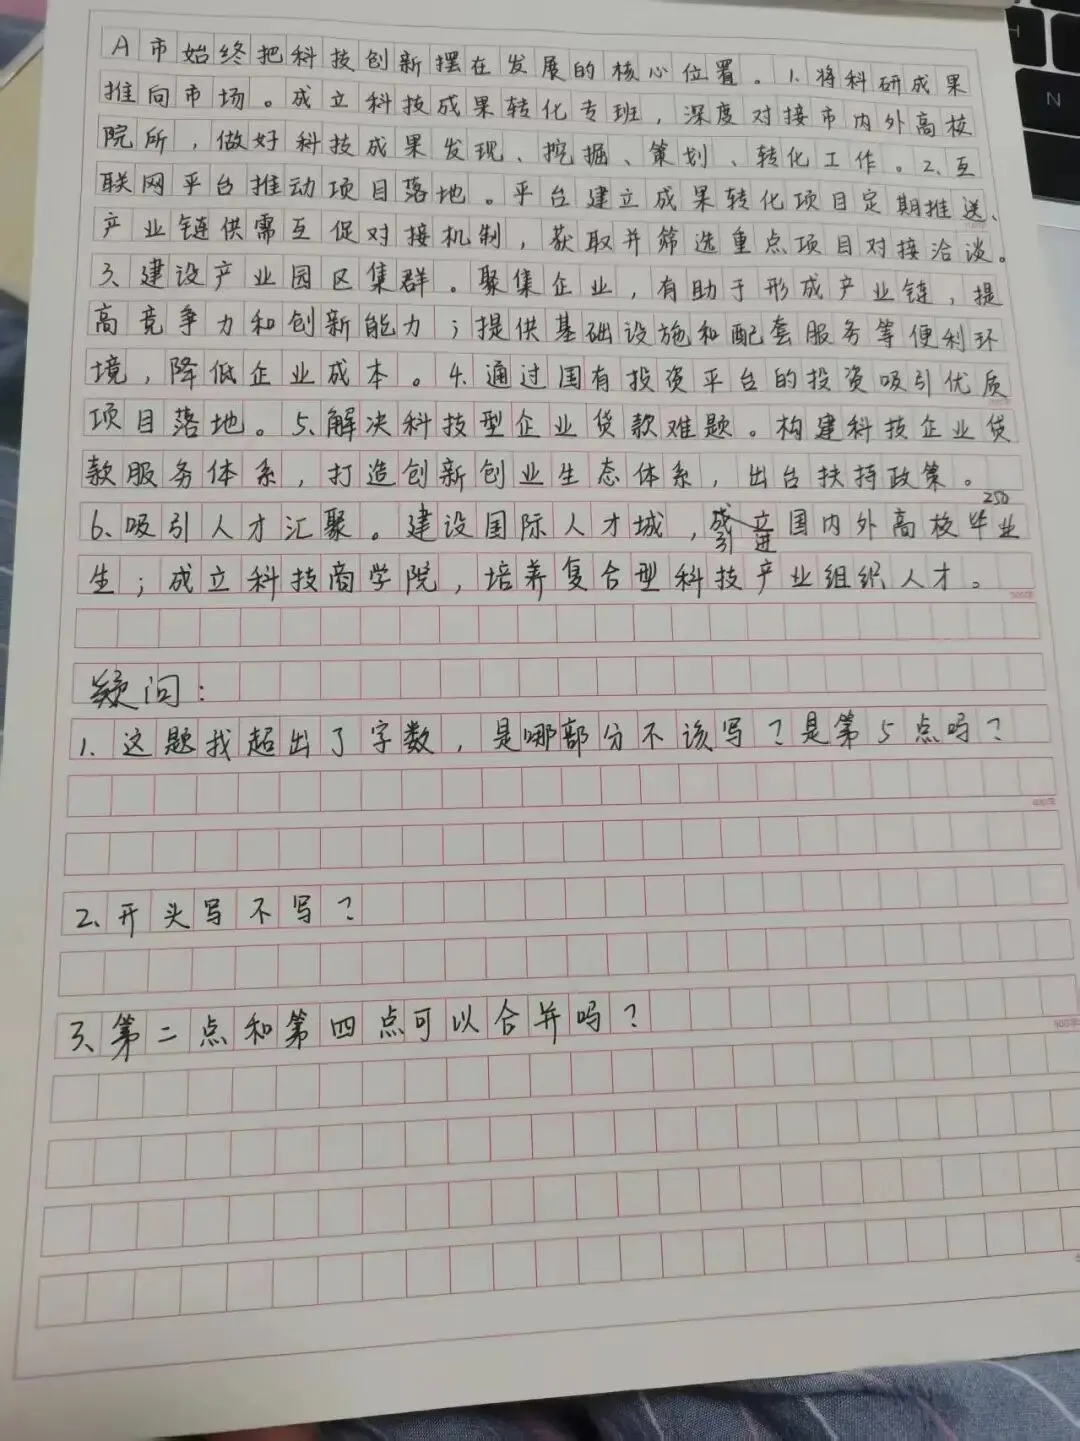 A市始终把科技创新摆在发展的核心位置。1.将科研成果
推向市场。成立科技成果转化专班，深度对接市内外高校
院所，做好科技成果发现、挖掘、策划、转化工作。2.互
联网平台推动项目落地。平台建立成果转化项目定期推送、
产业链供需互促对接机制，获取并筛选重点项目对接洽谈。
3.建设产业园区集群。聚集企业，有助于形成产业链，提
高竞争力和创新能力；提供基础设施和配套服务等便利环
境，降低企业成本。4.通过国有投资平台的投资吸引优质
项目落地。5.解决科技型企业贷款难题。构建科技企业贷
款服务体系，打造创新创业生态体系，出台扶持政策。
250
6.吸引人才汇聚。建设国际人才城，引进国内外高校毕业
生；成立科技商学院，培养复合型科技产业组织人才。
300字
疑问：
1.这题我超出了字数，是哪部分不该写？是第5点吗？
400字
2.开头写不写？
3、第二点和第四点可以合并吗？